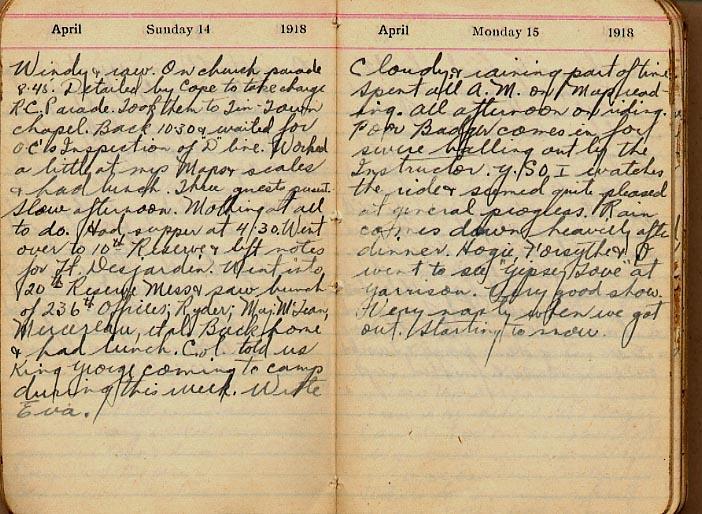 April Sunday 14 1918
Windy & raw. On church parade
8.45. Detailed by Cope to take charge
R.C. Parade. Took them to Tin-Town
chapel. Back 10.30 & waited for
O.C's Inspection of D line. Worked
a little at my Maps & scales
& had lunch. Three guests present.
Slow afternoon. Nothing at all
to do. Had supper at 4.30. Went
over to 10th Reserve & left notes
for Lt. Desjardin. Went into
20th Reserve Mess & saw bunch
of 236th Officers; Ryder; Maj. McLean,
Mercereau, et al. Back home
& had lunch. Col. told us
King George coming to camp
during this week. Wrote
Eva.
April Monday 15 1918
Cloudy & raining part of time
spent all A.M. on Map read-
ing. All afternoon on riding.
Poor Badger comes in for
severe balling out by the
Instructor. G.S.O. I watches
the ride & seemed quite pleased
at general progress. Rain
comes down heavily after
dinner. Hogie, Forsythe & I
went to see "Gipsey Love" at
Garrison. Very good show.
Very nasty when we got
out. Starting to snow.